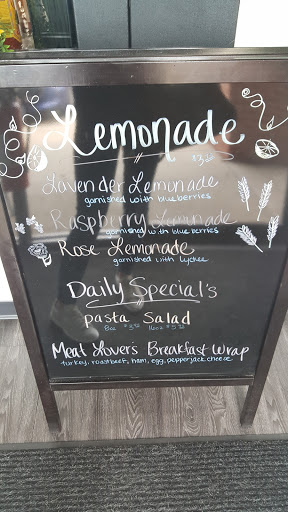 Lemonade
Lavender Lemonade
garnished with blueberries
Raspbrry Lemonade
garnished with blueberries
Rose Lemonade
garnished with Lychee
Daily Special's
pasta Salad
8oz 16oz
Meat Lovers Breakfast Wrap
turkey, roastbeef, ham, egg, pepperjack cheese